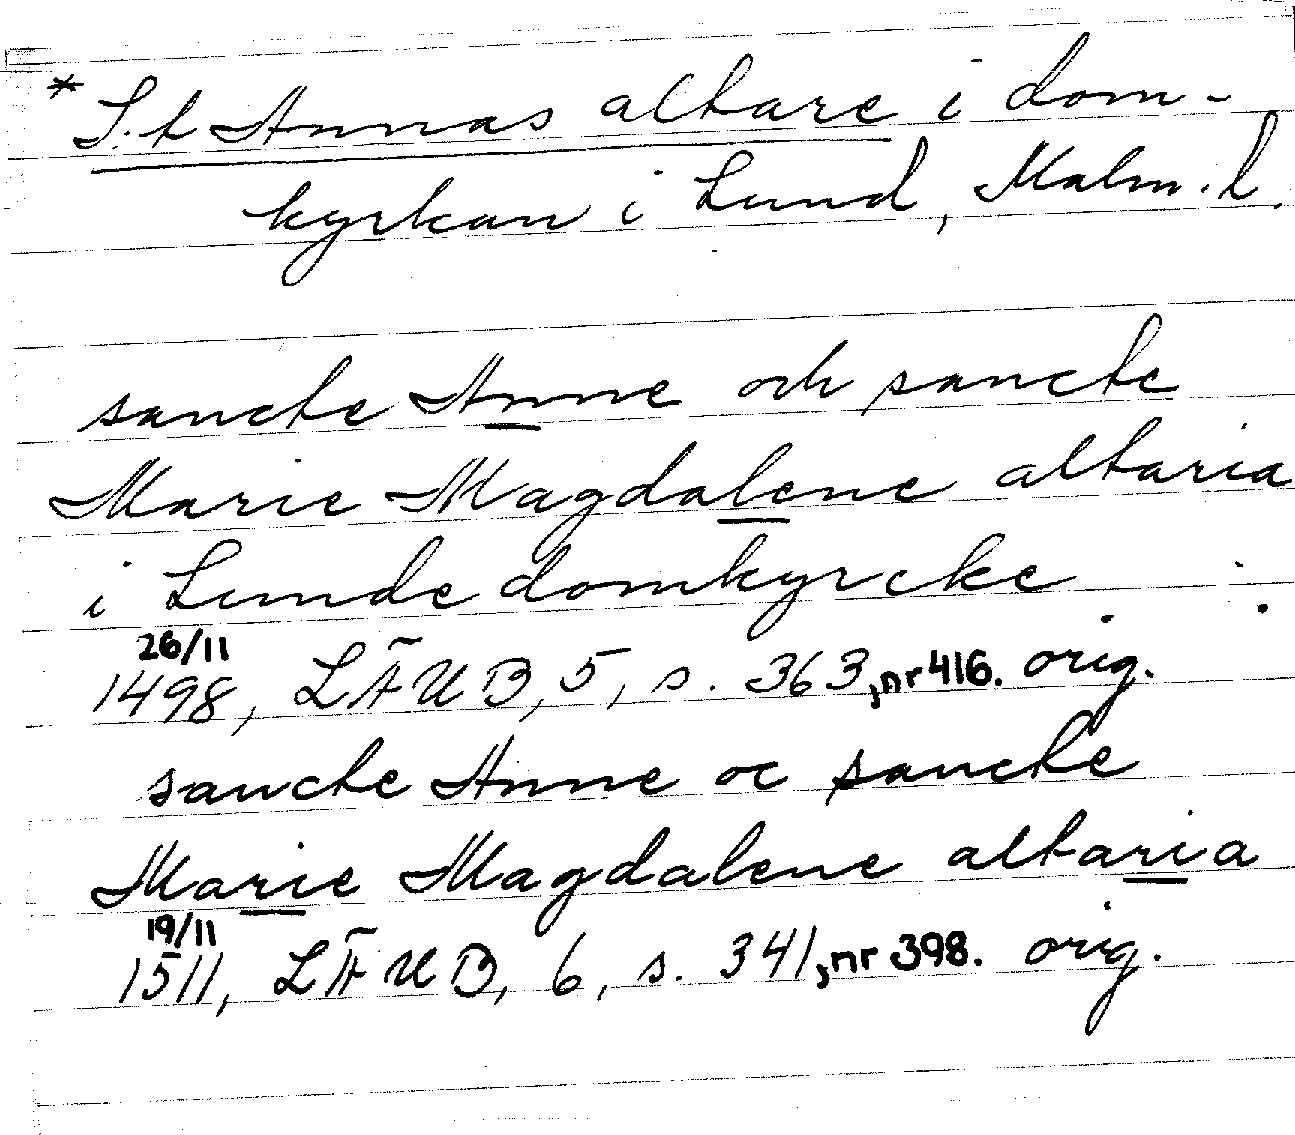 * S:t Annas altare i dom-
kyrkan i Lund, Malm. l.
sancte Anne och sancte
Marie Magdalene altaria
i Lunde domkyrcke
26/11
1498, LÄUB, 5, s. 363, nr 416. orig.
sancte Anne oc sancte
Marie Magdalene altaria
19/11
1511, LÄUB, 6, s. 341, nr 398. orig.